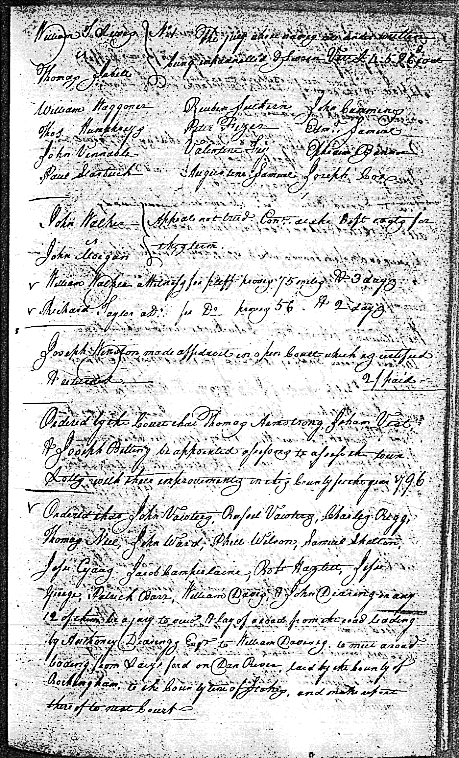 William T. Lewis } No 1. The jury whose names are under written
being impannelled & sworn Viz. N. 4. 5. & 6
Thomas Isbell
William Waggoner Reuben Sutheren John Cummins
Thos. Humphress Peter Fizer Edm. Samuel
John Vennable Valentine Frey Ephraim Bennon
Paul Starbuck Augustine Samuel Joseph Cox
John Walker } Appeal not tried Cont. at the Deft costs for
John Morgan } this term.
William Walker attends for pltff proves 75 miles & 3 days
Richard Taylor atd. for Do. proves 56. & 2 days
Joseph Winston made affidavit in open Court which is certified
2/ paid
Ordered by the Court that Thomas Armstrong, Johan Vest
& Joseph Bitting be appointed assessors to assess the town
Lotts with their improvements in this County for the year 1796
Ordered that John Vawter, Russel Vawter, Charles Regg,
Thomas Neel, John Ward, Phill Wilson, Samuel Shelton,
Jesse Crain, Jacob Camperlaine, Robt. Haslet, Jesse
George, Patrick Barr, William Davis & John Dearing or any
12 of them be a jury to view & lay of a road from the road leading
by Anthony Dearings Esqr. to William Davises to meet a road
leading from ford on Dan River, laid by the County of
Rockingham, to the County line of Stokes, and make report
thereof to next Court